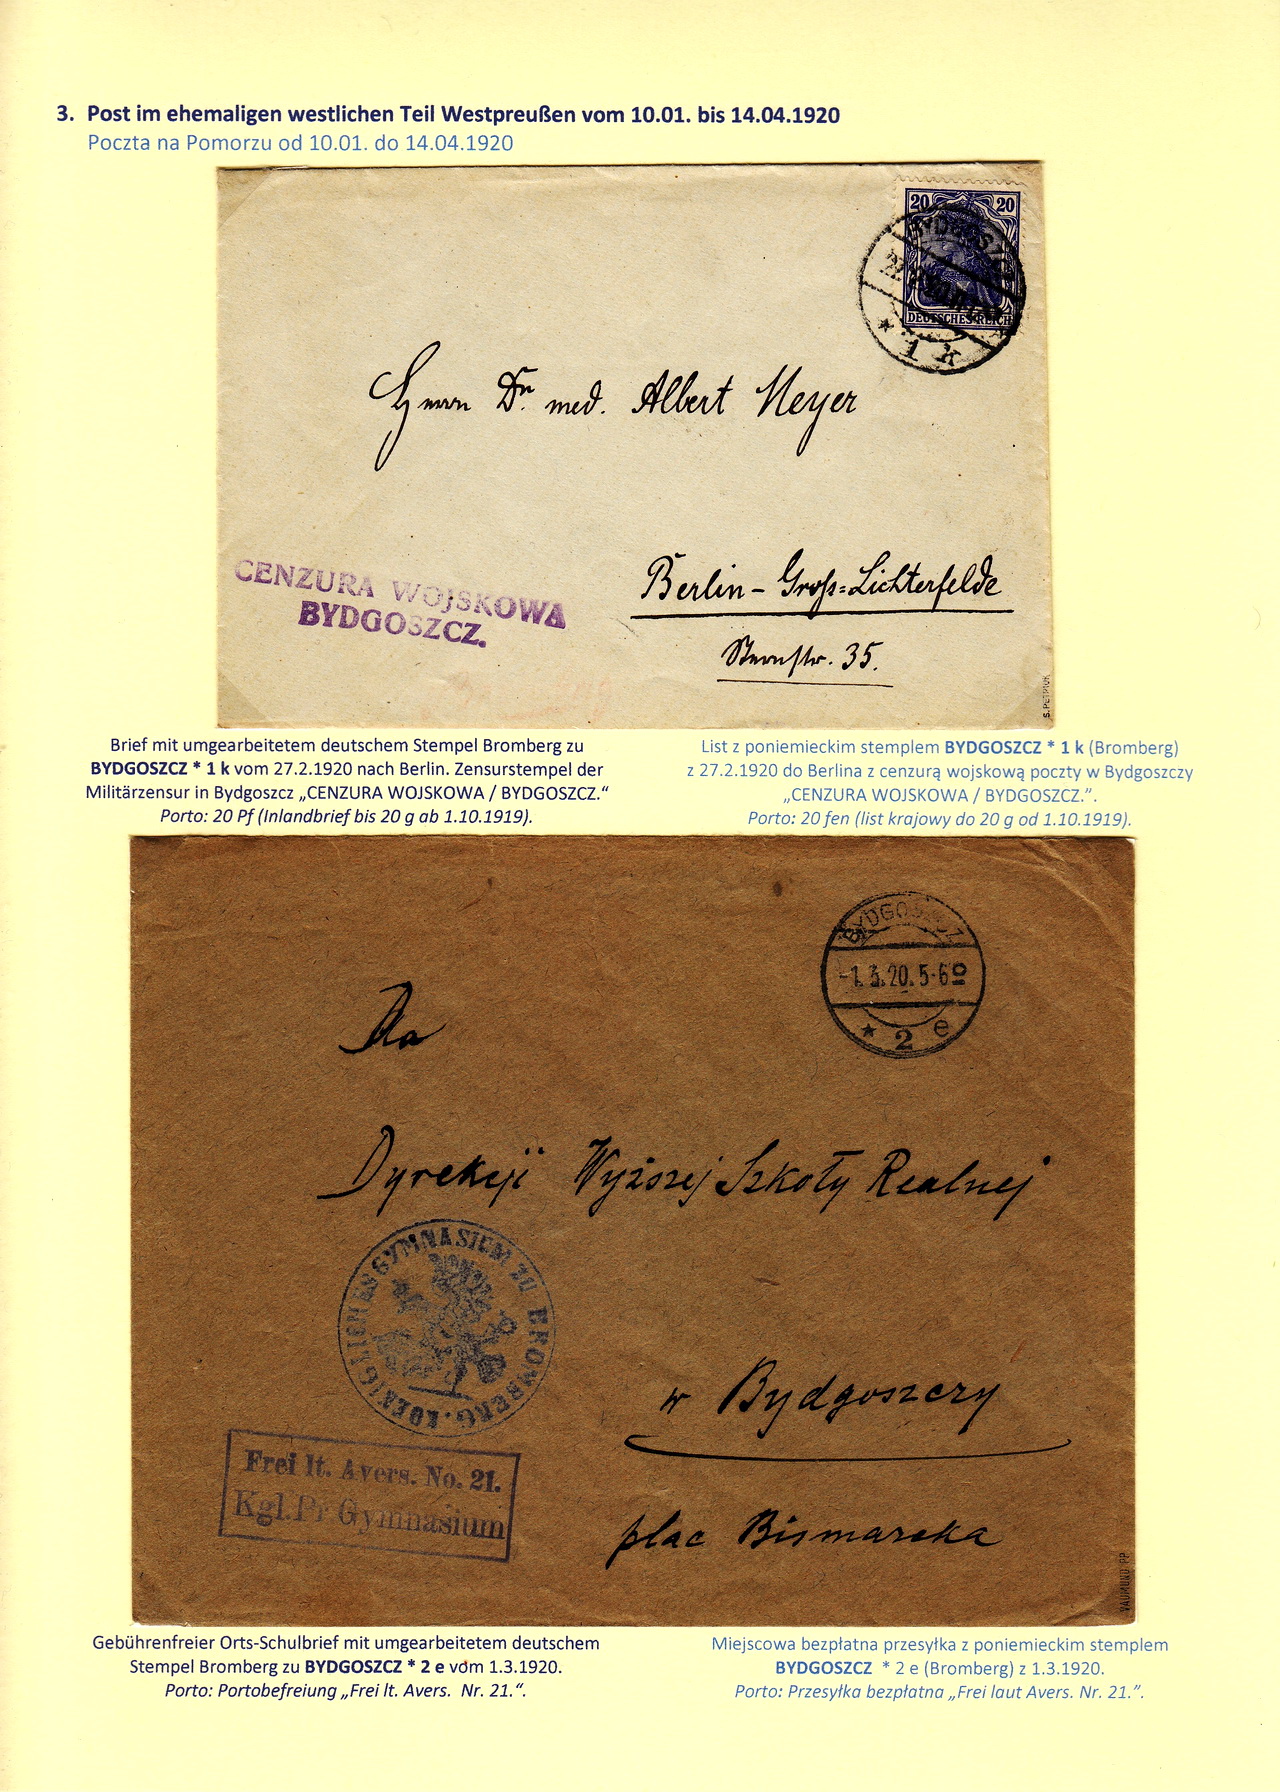 3. Post im ehemaligen westlichen Teil Westpreußen vom 10.01. bis 14.04.1920
Poczta na Pomorzu od 10.01. do 14.04.1920
20 20
DEUTSCHES REICH
* 1 k
Herrn Dr. med. Albert Meyer
Berlin - Groß=Lichterfelde
CENZURA WOJSKOWA
BYDGOSZCZ.
Sternstr. 35.
S. PETRIUK
Brief mit umgearbeitetem deutschem Stempel Bromberg zu
BYDGOSZCZ * 1 k vom 27.2.1920 nach Berlin. Zensurstempel der
Militärzensur in Bydgoszcz „CENZURA WOJSKOWA / BYDGOSZCZ.“
Porto: 20 Pf (Inlandbrief bis 20 g ab 1.10.1919).
List z poniemieckim stemplem BYDGOSZCZ * 1 k (Bromberg)
z 27.2.1920 do Berlina z cenzurą wojskową poczty w Bydgoszczy
„CENZURA WOJSKOWA / BYDGOSZCZ.”.
Porto: 20 fen (list krajowy do 20 g od 1.10.1919).
BYDGOSZCZ
-1.3.20.5-6
* 2 e
Dyrekcji Wyższej Szkoły Realnej
KOENIGLICHES GYMNASIUM ZU BROMBERG.
w Bydgoszczy
Frei lt. Avers. No. 21.
Kgl. Pr Gymnasium
plac Bismarcka
VAUMUND PP
Gebührenfreier Orts-Schulbrief mit umgearbeitetem deutschem
Stempel Bromberg zu BYDGOSZCZ * 2 e vom 1.3.1920.
Porto: Portobefreiung „Frei lt. Avers. Nr. 21.“.
Miejscowa bezpłatna przesyłka z poniemieckim stemplem
BYDGOSZCZ * 2 e (Bromberg) z 1.3.1920.
Porto: Przesyłka bezpłatna „Frei laut Avers. Nr. 21.”.